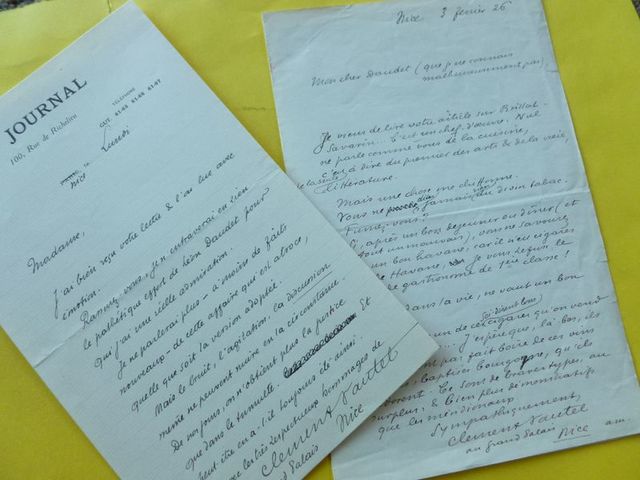 JOURNAL
100, Rue de Richelieu
TÉLÉPHONE
Nice
Lundi
Madame,
J'ai bien reçu votre lettre & l'ai lue avec
émotion.
Rassurez-vous, je n'entraverai en rien
le pathétique effort de Léon Daudet pour
qui j'ai une réelle admiration.
Je ne parlerai plus – à moins de faits
nouveaux – de cette affaire qui est atroce,
quelle que soit la version adoptée.
Mais le bruit, l'agitation, la discussion
même ne peuvent nuire en la circonstance.
De nos jours, on n'obtient plus la justice
que dans le tumulte. Et
peut-être en a-t-il toujours été ainsi.
les très respectueux hommages de
Clément Vautel
Palais Nice
Nice 3 février 26
Mon cher Daudet (que je ne connais
malheureusement pas),
Je viens de lire votre article sur Brillat-
Savarin. C'est un chef d'œuvre. Nul
ne parle comme vous de la cuisine,
c'est à dire du premier des arts & de la vraie
littérature.
Mais une chose me chiffonne.
Vous ne jamais du divin tabac.
Fumez-vous?
, après un bon déjeuner ou dîner (et
tout un mauvais), vous ne savourez
un bon havane, car il n'est cigares
de Havane, Je vous refuse le
gastronome de 1ère classe!
dans la vie, ne vaut un bon
un de ces cigares qu'on vend
J'espère que, là-bas, ils
pas fait boire de ces vins
, baptisés bourgogne, qu'ils
Ce sont de braves types, au
surplus, & bien plus
que les méridionaux
Sympathiquement,
Clément Vautel
au grand Palais Nice a.m.